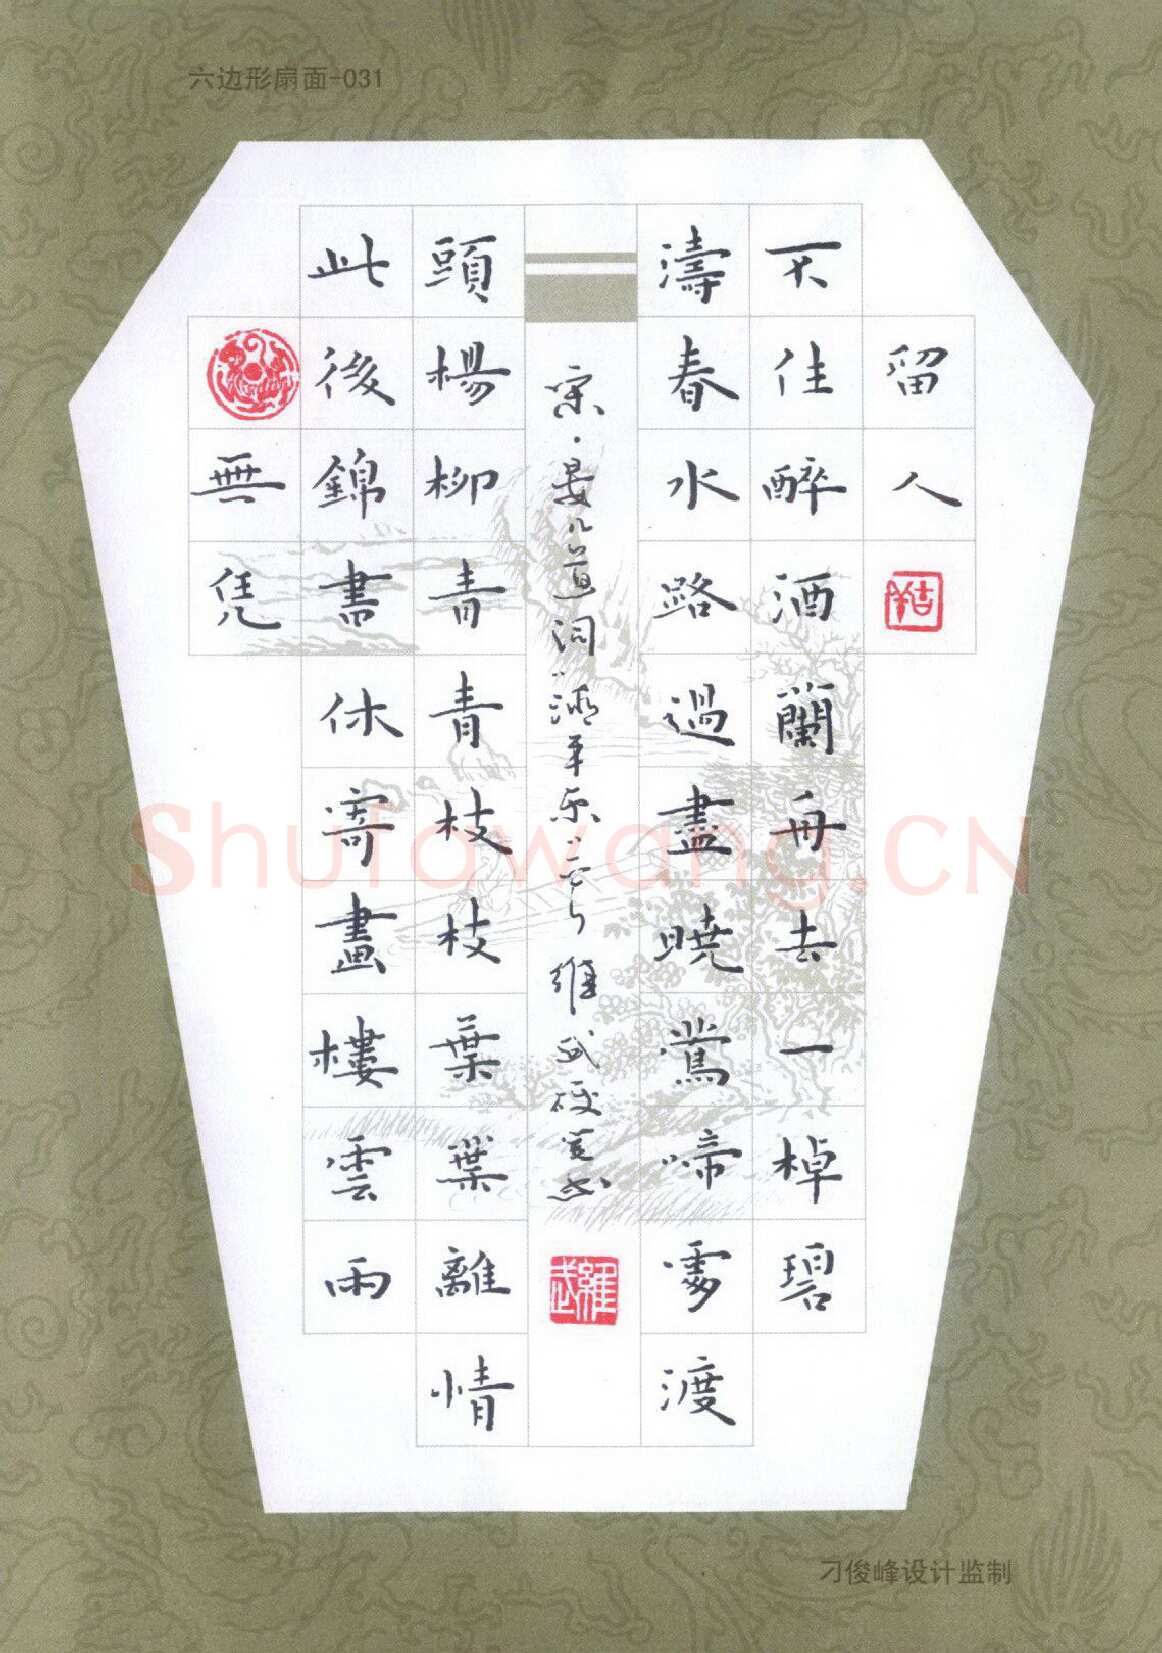 六边形扇面-031
留人
不住醉酒蘭舟去一棹碧
濤春水路過盡曉鶯啼處渡
宋·晏几道词"清平乐"
羅武
頭楊柳青青枝枝葉葉離情
此後錦書休寄畫樓雲雨
無凭
Shufawang.CN
刁俊峰设计监制